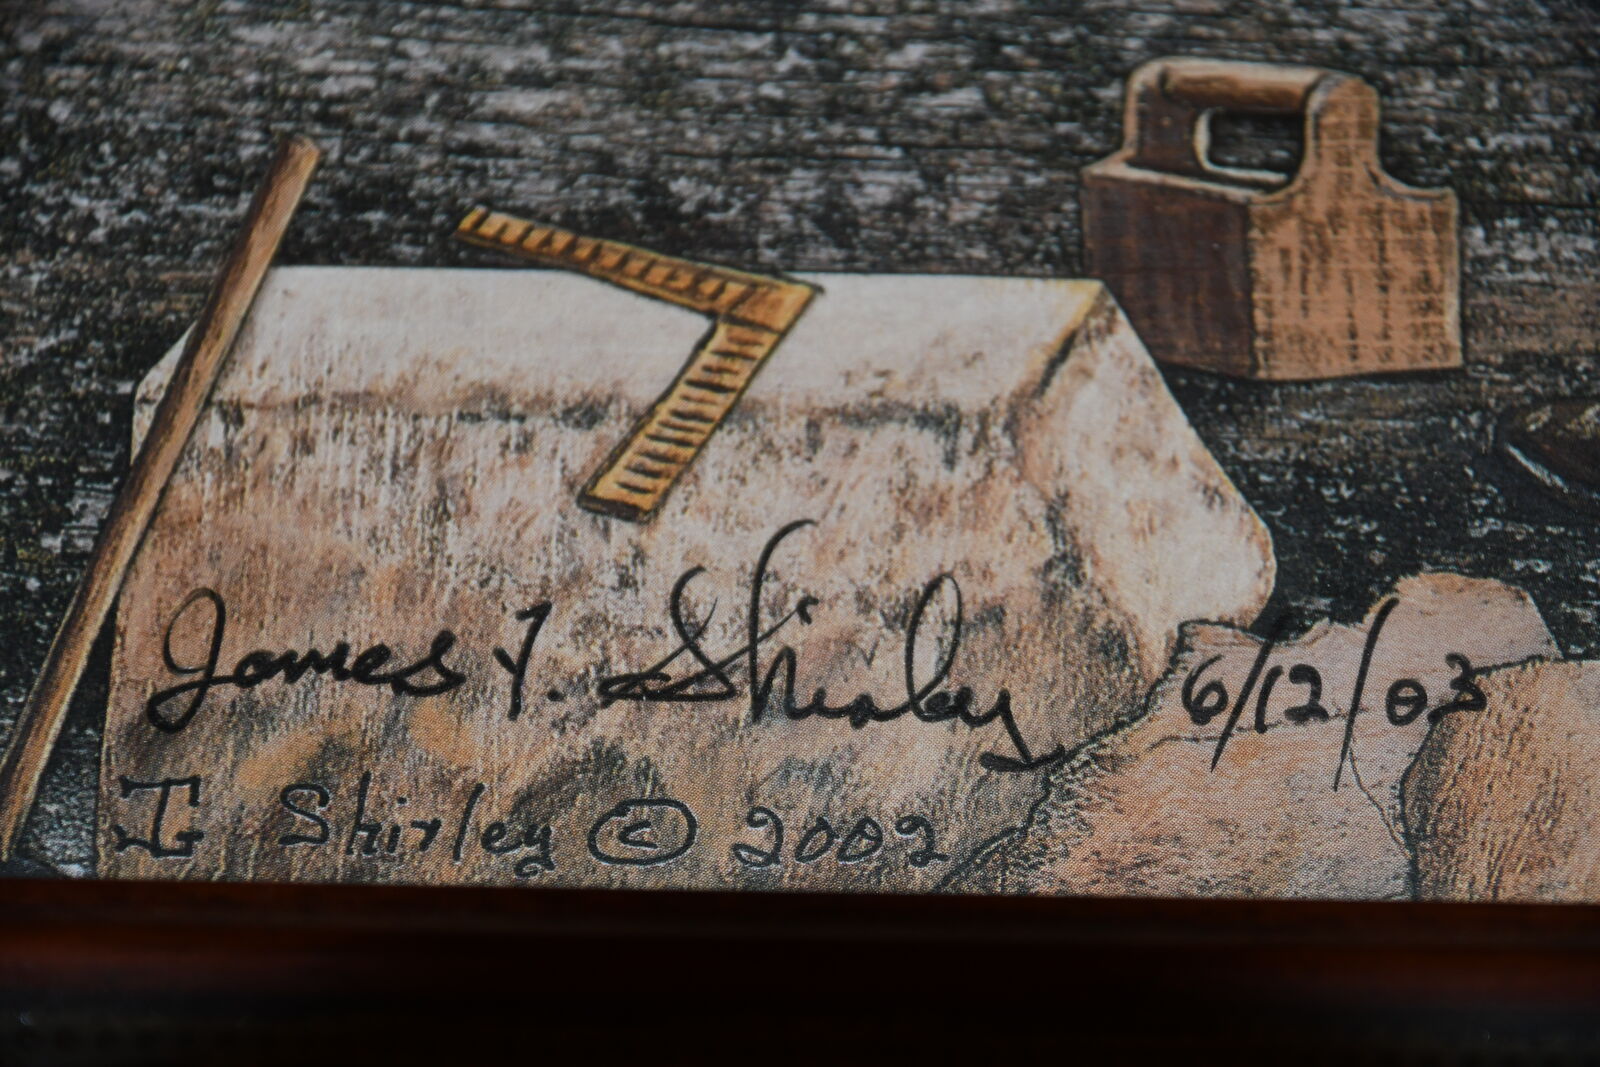 James T. Shirley 6/12/03
Shirley © 2002